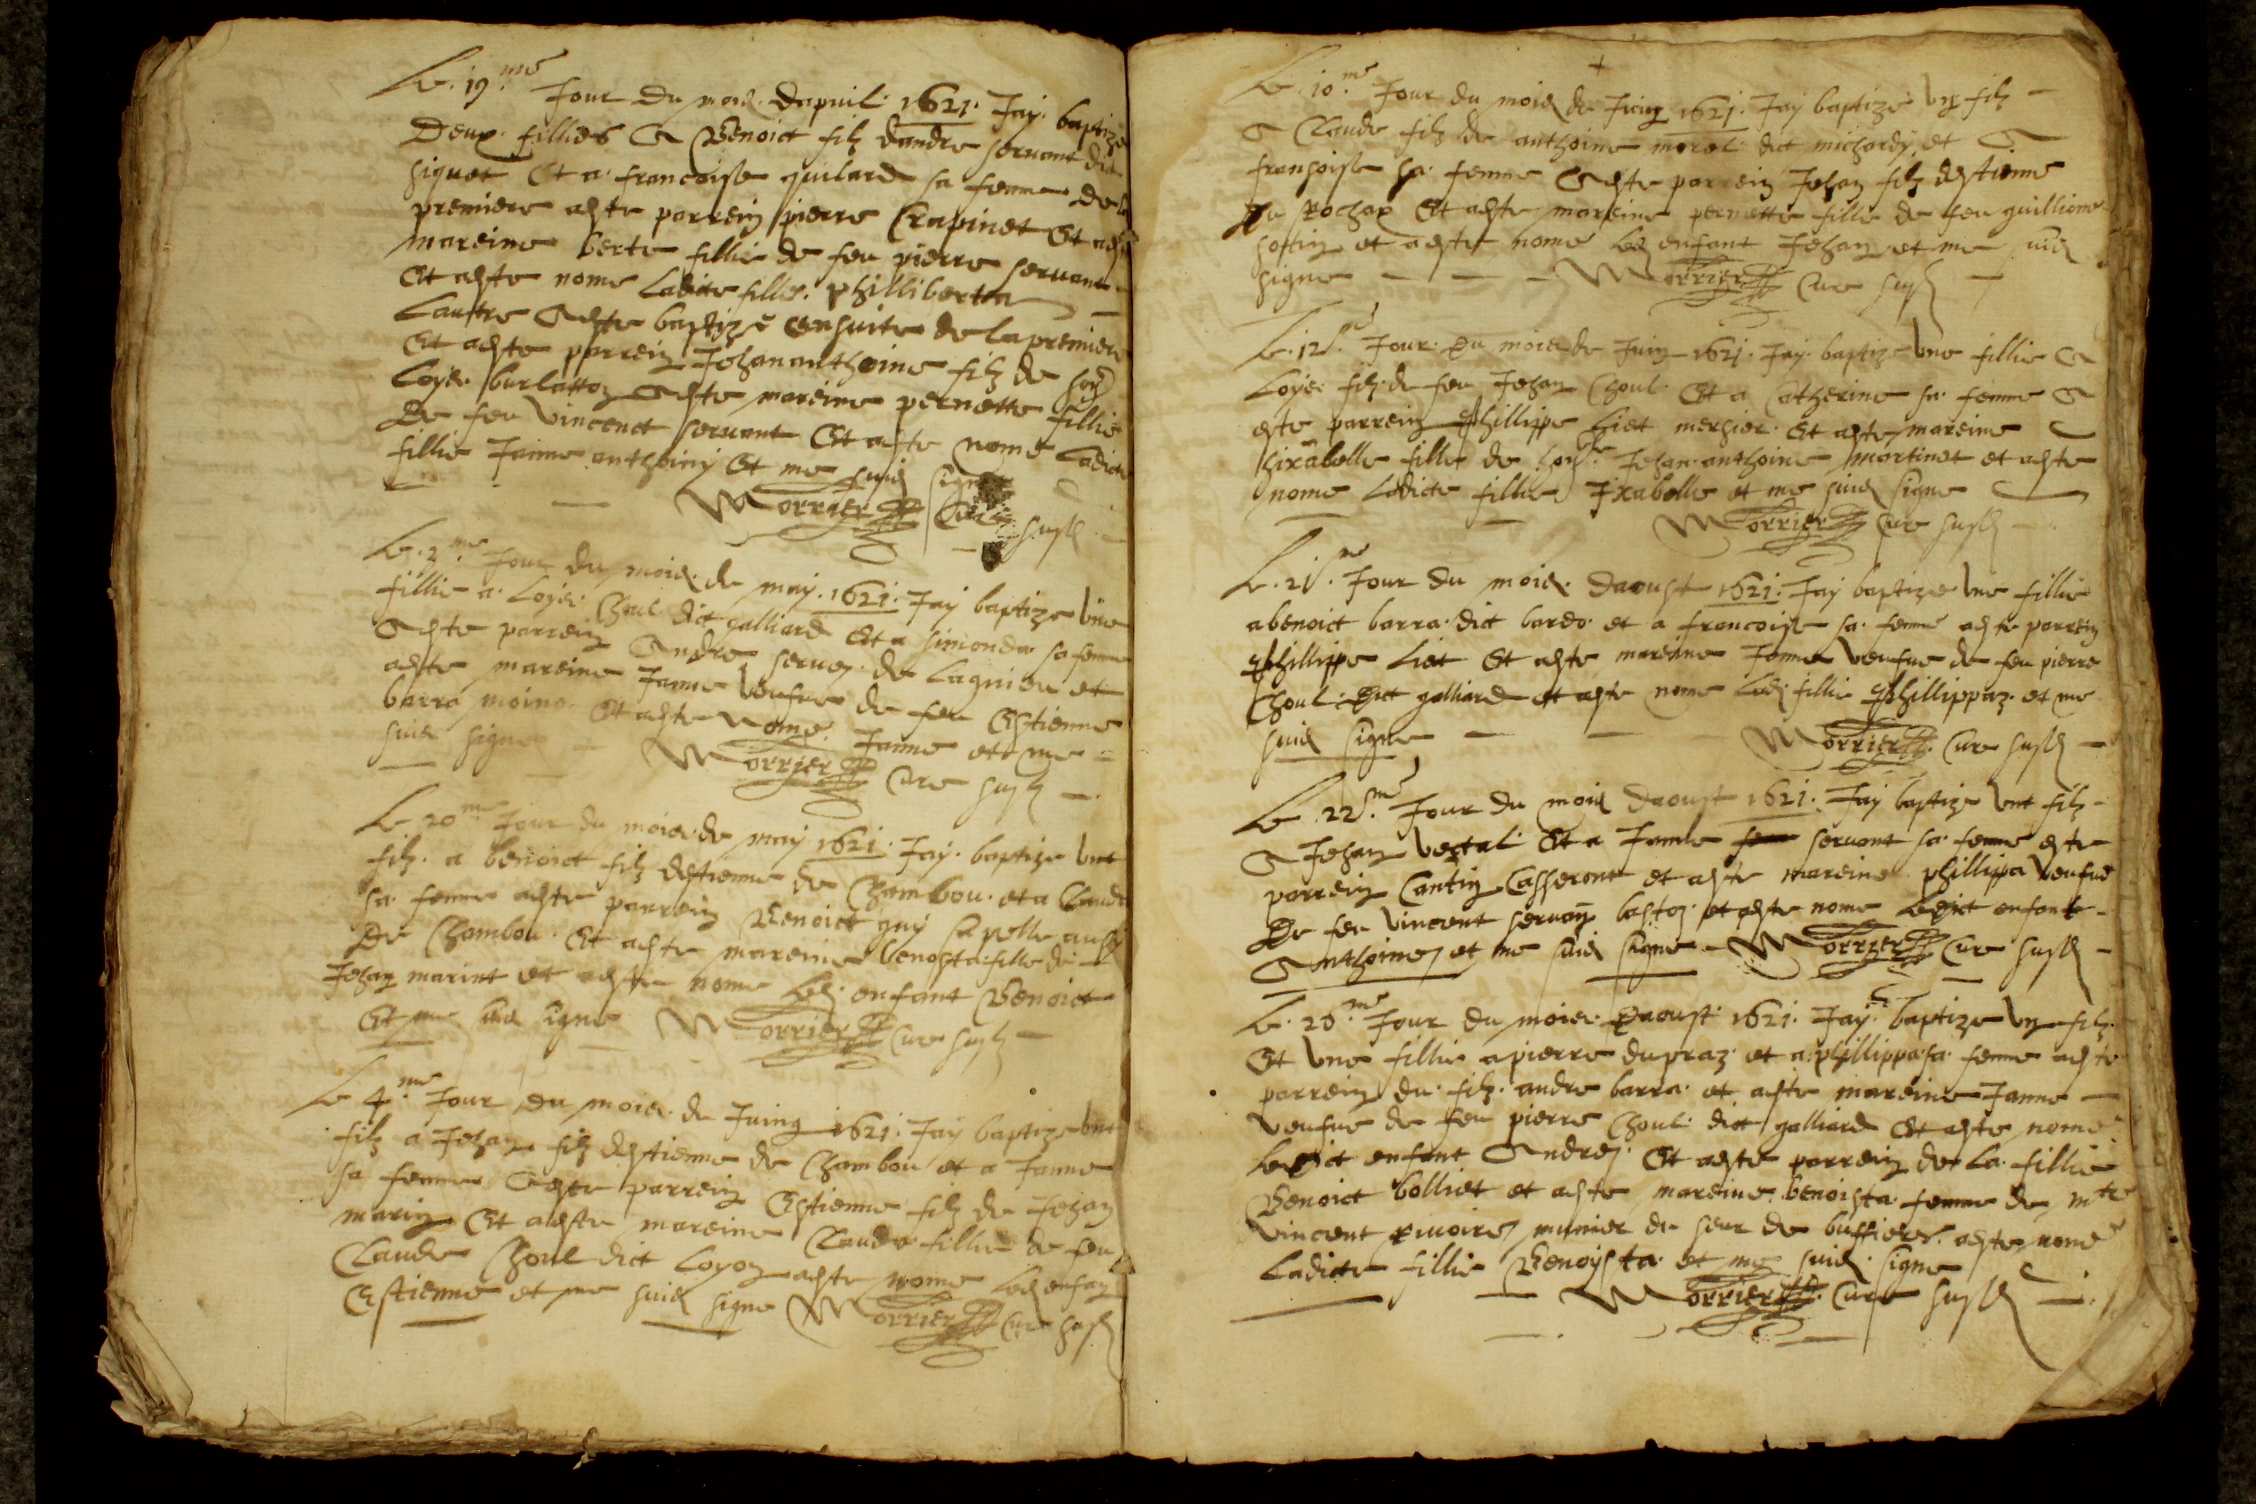 Le 19.me Jour du mois dapuril 1621. Jay baptize
Deux fillies A Benoict filz dandre servant dict
siquet Et a francoise guilard sa femme de la
premiere aeste parrein pierre Crapinet Et aeste
mareine berte fillie de feu pierre servant
Et aeste nome Ladicte fillie phillibertaz
Lautre Aeste baptizé Ensuite de la premiere
Et aeste parrein Jehan anthoine filz de
Loyse burlatton Aeste mareine pernette fillie
De feu Vincenct servant Et aeste nomé Ladicte
fillie Janne anthoiny Et me suis signe
Morrier Cure susd
Le .2.me Jour du mois de may .1621. Jay baptize Une
fillie a Loyse Choul dict galliard Et a simonda sa femme
Aeste parrein Andre servez de Lagnieu et
aeste mareine Janne Veufue de feu Estienne
barra moino Et aeste nomé Janne et me
suis signe Morrier Cure susd
Le 20.me Jour du mois de may 1621. Jay baptize Unt
filz a benoict filz destienne de Chambou et a Claude
sa femme aeste parrein Benoict guy sapelle aussy
De Chambou Et aeste mareine benoista fille de
Jehan marint et aeste nome Led enfant Benoict
Et me suis signe Morrier Cure susd
Le 4.me Jour du mois de Juing 1621. Jay baptize Unt
filz a Jehan filz destienne de Chambou et a Janne
sa femme Aeste parrein Estienne filz de Jehan
marin Et aeste mareine Clauda fillie de feu
Claude Choul dict Loyon aeste nome Led enfan
Estienne et me suis signe Morrier Cure susd
Le .10.me Jour du mois de Juing 1621. Jay baptizé Un filz
A Claude filz de anthoine morel dict michardy et A
fransoise sa femme Aeste parrein Jehan filz destienne
Du Rochax Et aeste mareine pernette fillie de feu guillieme
sotin et aeste nome Led enfant Jehan et me suis
signe Morrier Cure susd
Le .12. Jour Du mois de Juin 1621. Jay baptize Une fillie A
Loyse filz de feu Jehan Choul Et a Catherine sa femme A
este parrein phillippe Liet mersier Et aeste mareine
sixabelle fille de Jehan anthoine martinet et aeste
nome Ladicte fillie Jxabelle et me suis signe
Morrier Cure susd
Le .21.me Jour du mois Daoust 1621. Jay baptize Une fillie
a benoict barra dict bardo et a francoise sa femme aeste parrein
phillippe Liet Et aeste mareine Janne Veufue de feu pierre
Choul Dict galliard et aeste nome Lad fillie phillippaz et me
suis signe Morrier Cure susd
Le .22.me Jour du mois Daoust 1621. Jay baptize Unt filz
A Jehan Vectal Et a Jamle servant sa femme este
parrein Cantin Casseront et aeste mareine phillippa Veufue
De feu Vincent servan baston et aeste nome Ledict enfant
Anthoine et me suis signe Morrier Cure susd
Le .26.me Jour du mois Daoust 1621. Jay baptize Un filz
Et Une fillie a pierre dupraz et a phillippa sa femme aeste
parrein du filz andre barra et aeste mareine Janne
Veufue de feu pierre Choul dict galliard Et aeste nomé
Ledict enfant Andre Et aeste parrein de La fillie
Benoict bolliet et aeste mareine benoista femme de mtre
Vincent Riuoire munier du seur de buffieres aeste nomé
Ladicte fillie Benoysta et me suis signe
Morrier Cure susd